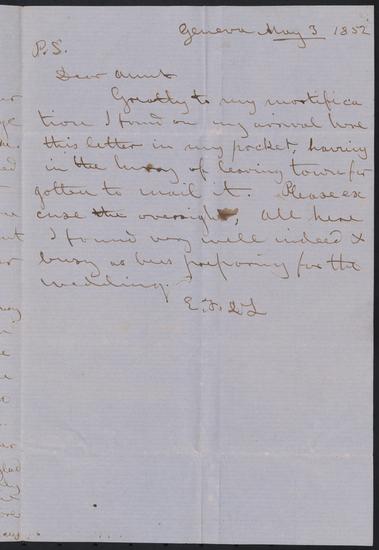 Geneva May 3 1852
P.S.
Dear Aunt
Greatly to my mortifica
tion I found on my arrival here
this letter in my pocket, having
in the hurry of leaving town for
gotten to mail it. Please ex
cuse the oversight, All here
I found very well indeed &
busy as bees preparing for the
wedding.